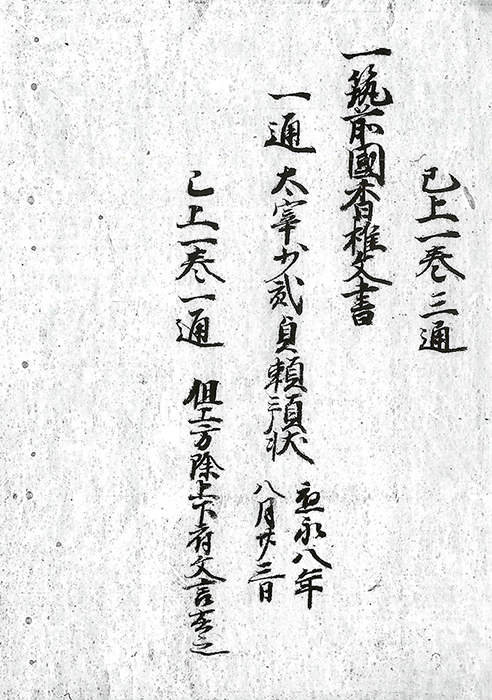 已上一巻三通
一筑前國香椎文書
一通 太宰少貳貞頼預状 應永八年
八月廿三日
已上一巻一通 但 方除上下 文言在之